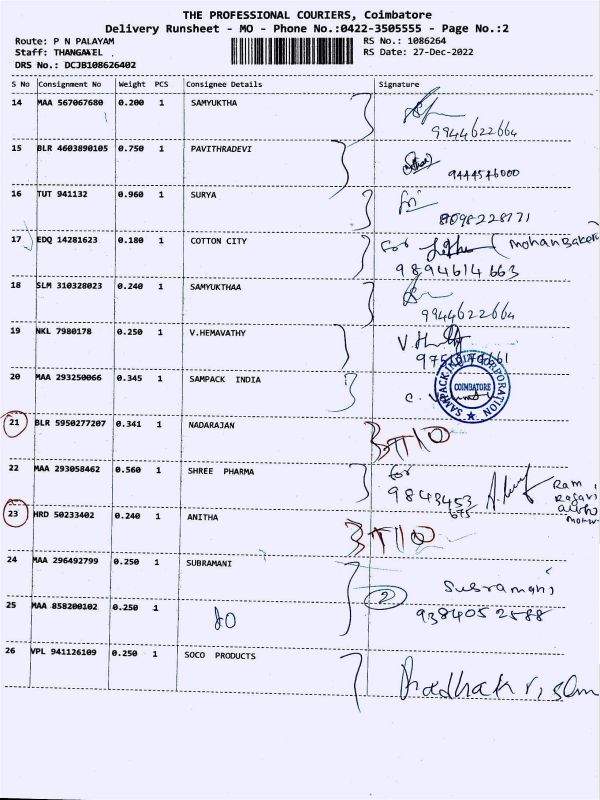 THE PROFESSIONAL COURIERS, Coimbatore
Delivery Runsheet - MO - Phone No.:0422-3505555 - Page No.:2
Route: P N PALAYAM RS No.: 1086264
Staff: THANGAVEL . RS Date: 27-Dec-2022
DRS No.: DCJB108626402
S No Consignment No Weight PCS Consignee Details Signature
14 MAA 567067680 0.200 1 SAMYUKTHA
9944622664
15 BLR 4603890105 0.750 1 PAVITHRADEVI
9444546000
16 TUT 941132 0.960 1 SURYA Sri
8098228771
17 EDQ 14281623 0.180 1 COTTON CITY For (Mohan Bakery
9894614663
18 SLM 310328023 0.240 1 SAMYUKTHAA
9944622664
19 NKL 7980178 0.250 1 V.HEMAVATHY
20 MAA 293250066 0.345 1 SAMPACK INDIA
SAMPACK INDIA CORPORATION
COIMBATORE
21 BLR 5950277207 0.341 1 NADARAJAN
22 MAA 293058462 0.560 1 SHREE PHARMA for
9843453
675
Ram
23 HRD 50233402 0.240 1 ANITHA
24 MAA 296492799 0.250 1 SUBRAMANI
2 Subramani
9384052588
25 MAA 858200102 0.250 1 do
26 VPL 941126109 0.250 1 SOCO PRODUCTS